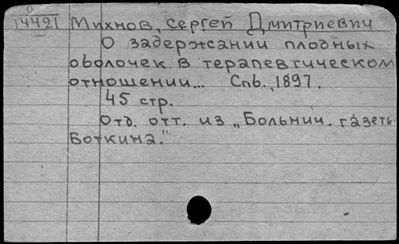 14421 Михнов, Сергей Дмитриевич
О задержании плодных
оболочек в терапевтическом
отношении... Спб., 1897.
45 стр.
Отд. отт. из „Больнич. газеты
Боткина."